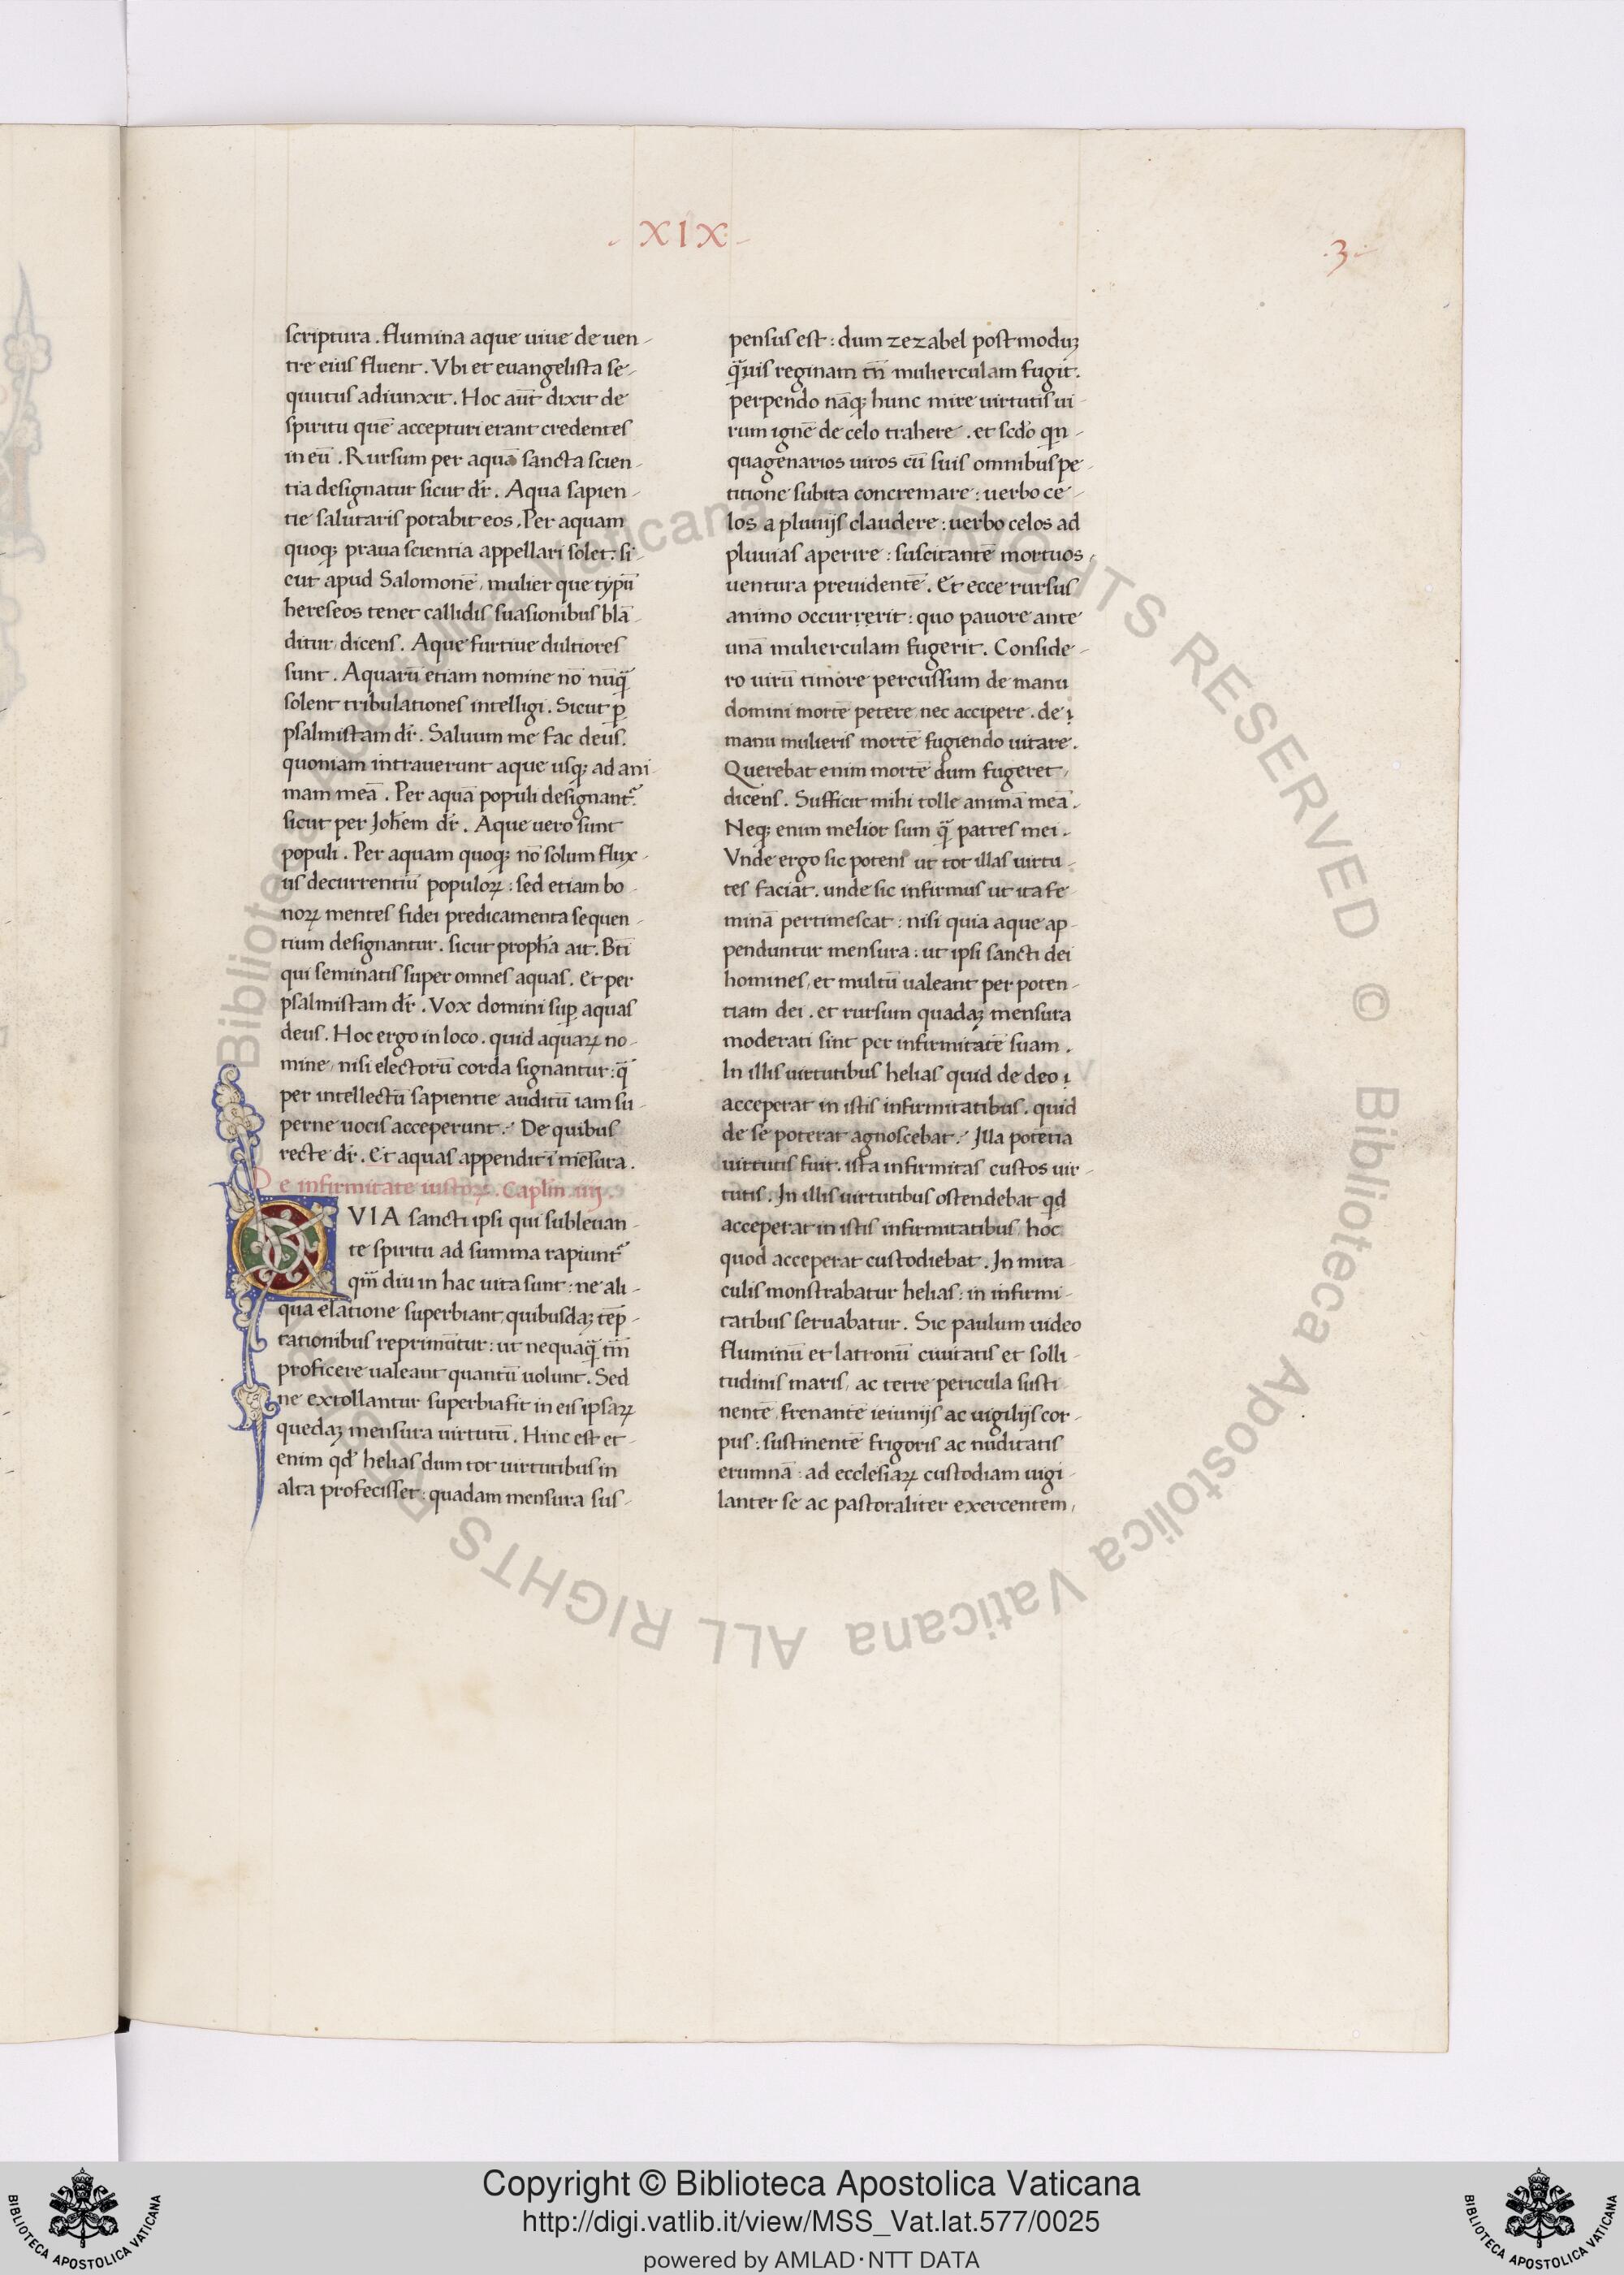 - XIX -
.3.
scriptura . flumina aque uiue de uen-
tre eius fluent . Vbi et euangelista se-
quutus adiunxit . Hoc aūt dixit de
spiritu quē accepturi erant credentes
in eū . Rursum per aquā sancta scien-
tia designatur sicut dr̄ . Aqua sapien-
tie salutaris potabit eos . Per aquam
quoqꝫ praua scientia appellari solet : si-
cut apud Salomonē , mulier que typū
hereseos tenet callidis suasionibus blā-
ditur , dicens . Aque furtiue dultiores
sunt . Aquarū etiam nomine nō nūq̄
solent tribulationes intelligi . Sicut ꝑ
psalmistam dr̄ . Saluum me fac deus .
quoniam intrauerunt aque usqꝫ ad ani-
mam meā . Per aquā populi designant᷑ .
sicut per Joh̄em dr̄ . Aque uero sunt
populi . Per aquam quoqꝫ nō solum flux-
us decurrentiū populoꝝ : sed etiam bo-
noꝝ mentes fidei predicamenta sequen-
tium designantur . sicut proph̄a ait . Bt̄i
qui seminatis super omnes aquas . Et per
psalmistam dr̄ . Vox domini suꝑ aquas
deus . Hoc ergo in loco . quid aquaꝝ no-
mine , nisi electorū corda signantur : q̄
per intellectū sapientie auditū iam su-
perne uocis acceperunt . De quibus
recte dr̄ . Et aquas appendit ī mēsura .
De infirmitate iustoꝝ . Caplm̄ . iiij .
QVIA sancti ipsi qui subleuan-
te spiritu ad summa rapiunt᷑
qm̄ diu in hac uita sunt : ne ali-
qua elatione superbiant , quibusdaꝫ tēp-
tationibus reprimūtur : ut nequaq̄ tm̄
proficere ualeant quantū uolunt . Sed
ne extollantur superbia fit in eis ipsaꝝ
quedaꝫ mensura uirtutū . Hinc est et-
enim qd̄ helias dum tot uirtutibus in
alta profecisset : quadam mensura sus-
pensus est : dum zezabel post moduꝫ
q̄uis reginam tn̄ mulierculam fugit .
perpendo nāqꝫ hunc mire uirtutis ui-
rum ignē de celo trahere . et scd̄o qn̄-
quagenarios uiros cū suis omnibus pe-
titione subita concremare : uerbo ce-
los a pluuijs claudere : uerbo celos ad
pluuias aperire : suscitantē mortuos ,
uentura preuidentē . Et ecce rursus
animo occurrerit : quo pauore ante
unā mulierculam fugerit . Conside-
ro uirū timore percussum de manu
domini mortē petere nec accipere . de ı
manu mulieris mortē fugiendo uitare .
Querebat enim mortē dum fugeret ,
dicens . Sufficit mihi tolle animā meā .
Neqꝫ enim melior sum q̄ patres mei .
Vnde ergo sic potens ut tot illas uirtu-
tes faciat . unde sic infirmus ut ita fe-
minā pertimescat : nisi quia aque ap-
penduntur mensura : ut ipsi sancti dei
homines , et multū ualeant per poten-
tiam dei . et rursum quadaꝫ mensura
moderati sint per infirmitatē suam .
In illis uirtutibus helias quid de deo ı
acceperat in istis infirmitatibus . quid
de se poterat agnoscebat . Illa potētia
uirtutis fuit . ista infirmitas custos uir-
tutis . In illis uirtutibus ostendebat qd̄
acceperat in istis infirmitatibus , hoc
quod acceperat custodiebat . In mira-
culis monstrabatur helias : in infirmi-
tatibus seruabatur . Sic paulum uideo
fluminū et latronū ciuitatis et solli-
tudinis maris , ac terre pericula susti-
nentē , frenantē ieiunijs ac uigilijs cor-
pus : sustinentē frigoris ac nuditatis
erumnā : ad ecclesiaꝝ custodiam uigi-
lanter se ac pastoraliter exercentem ,
Biblioteca Apostolica Vaticana ALL RIGHTS RESERVED © Biblioteca Apostolica Vaticana ALL RIGHTS RESERVED ©
Copyright © Biblioteca Apostolica Vaticana
http://digi.vatlib.it/view/MSS_Vat.lat.577/0025
powered by AMLAD·NTT DATA
BIBLIOTECA APOSTOLICA VATICANA
BIBLIOTECA APOSTOLICA VATICANA